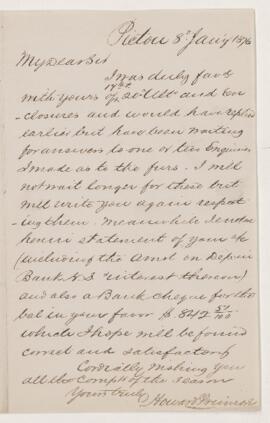 Pictou 8th Jany 1876
My Dear Sir
I was duly favd
with yours of 20th Ult and En
closures and would have replied
earlier but have been waiting
for answers to one or two Enquiries
I made as to the furs. I will
not wait longer for these but
will write you again respect
ing them. Meanwhile I enclose
herein statement of your a/c
(including the Amt on Deposit
Bank N.S & interest thereon)
and also a Bank cheque for the
bal in your favor $842
which I hope will be found
correct and satisfactory
Cordially wishing you
all the Compts of the season
Yours truly
Howard Primrose